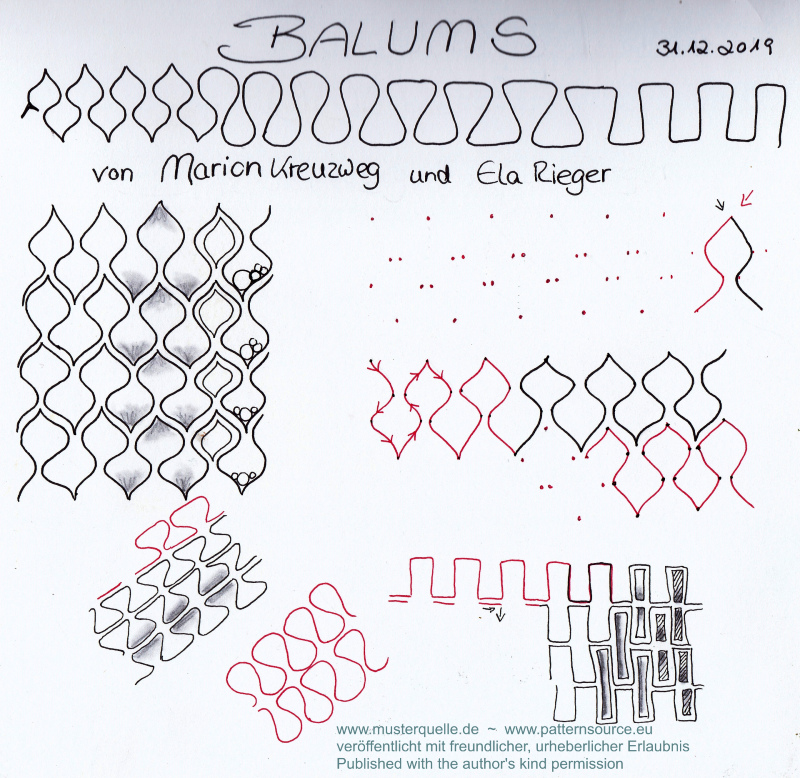 BALUMS
31.12.2019
von Marion Kreuzweg und Ela Rieger
www.musterquelle.de ~ www.patternsource.eu
veröffentlicht mit freundlicher, urheberlicher Erlaubnis
Published with the author's kind permission